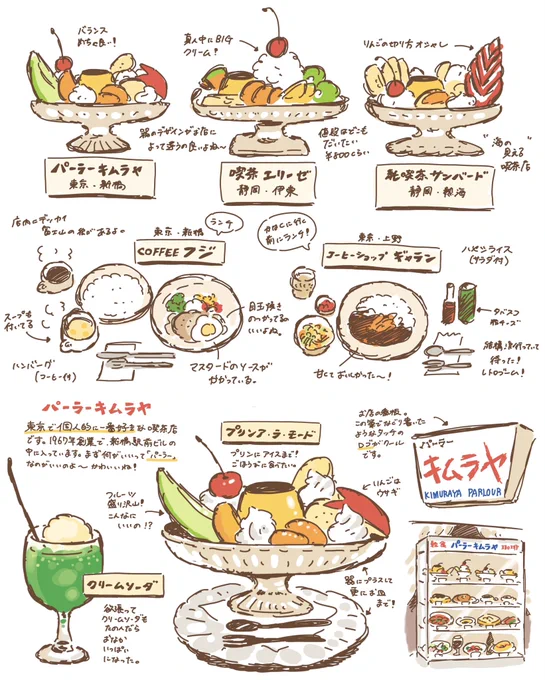 バランス
めちゃ良い!
真ん中にBIG
クリーム!
りんごの切り方オシャレ
器のデザインがお店に
よって違うの良いよね〜
値段はどこも
だいたい
¥800くらい
"海の
見える
喫茶店"
パーラーキムラヤ
東京・新橋
喫茶 エリーゼ
静岡・伊東
純喫茶・サンバード
静岡・熱海
店内にデッカイ
富士山の絵があるよ。
東京・新橋
COFFEE フジ
ランチ
東京・上野
コーヒーショップ ギャラン
ハヤシライス
(サラダ付)
スープも
付いてる
ハンバーグ
(コーヒー付)
目玉焼き
のっかってるの
いいよね。
マスタードのソースが
かかっている。
甘くておいしかった〜!
タバスコ
粉チーズ
結構並んでいて
待った!
レトロブーム!
パーラーキムラヤ
東京で個人的に一番好きな喫茶店
です。1967年創業で、新橋駅前ビルの
中に入っています。まず何がいいって「パーラー」
なのがいいのよ〜かわいいね!
プリンア・ラ・モード
プリンにアイスまで!
ごほうびに食べたい
フルーツ
盛り沢山!
こんなに
いいの!?
りんごは
ウサギ
お店の看板。
この筆でなぐり書いた
ようなタッチの
ロゴがクール
です。
パーラー
キムラヤ
KIMURAYA PARLOUR
クリームソーダ
欲張って
クリームソーダも
たのんだら
おなか
いっぱいに
なった。
器にプラスして
更にお皿
まで!
パーラーキムラヤ